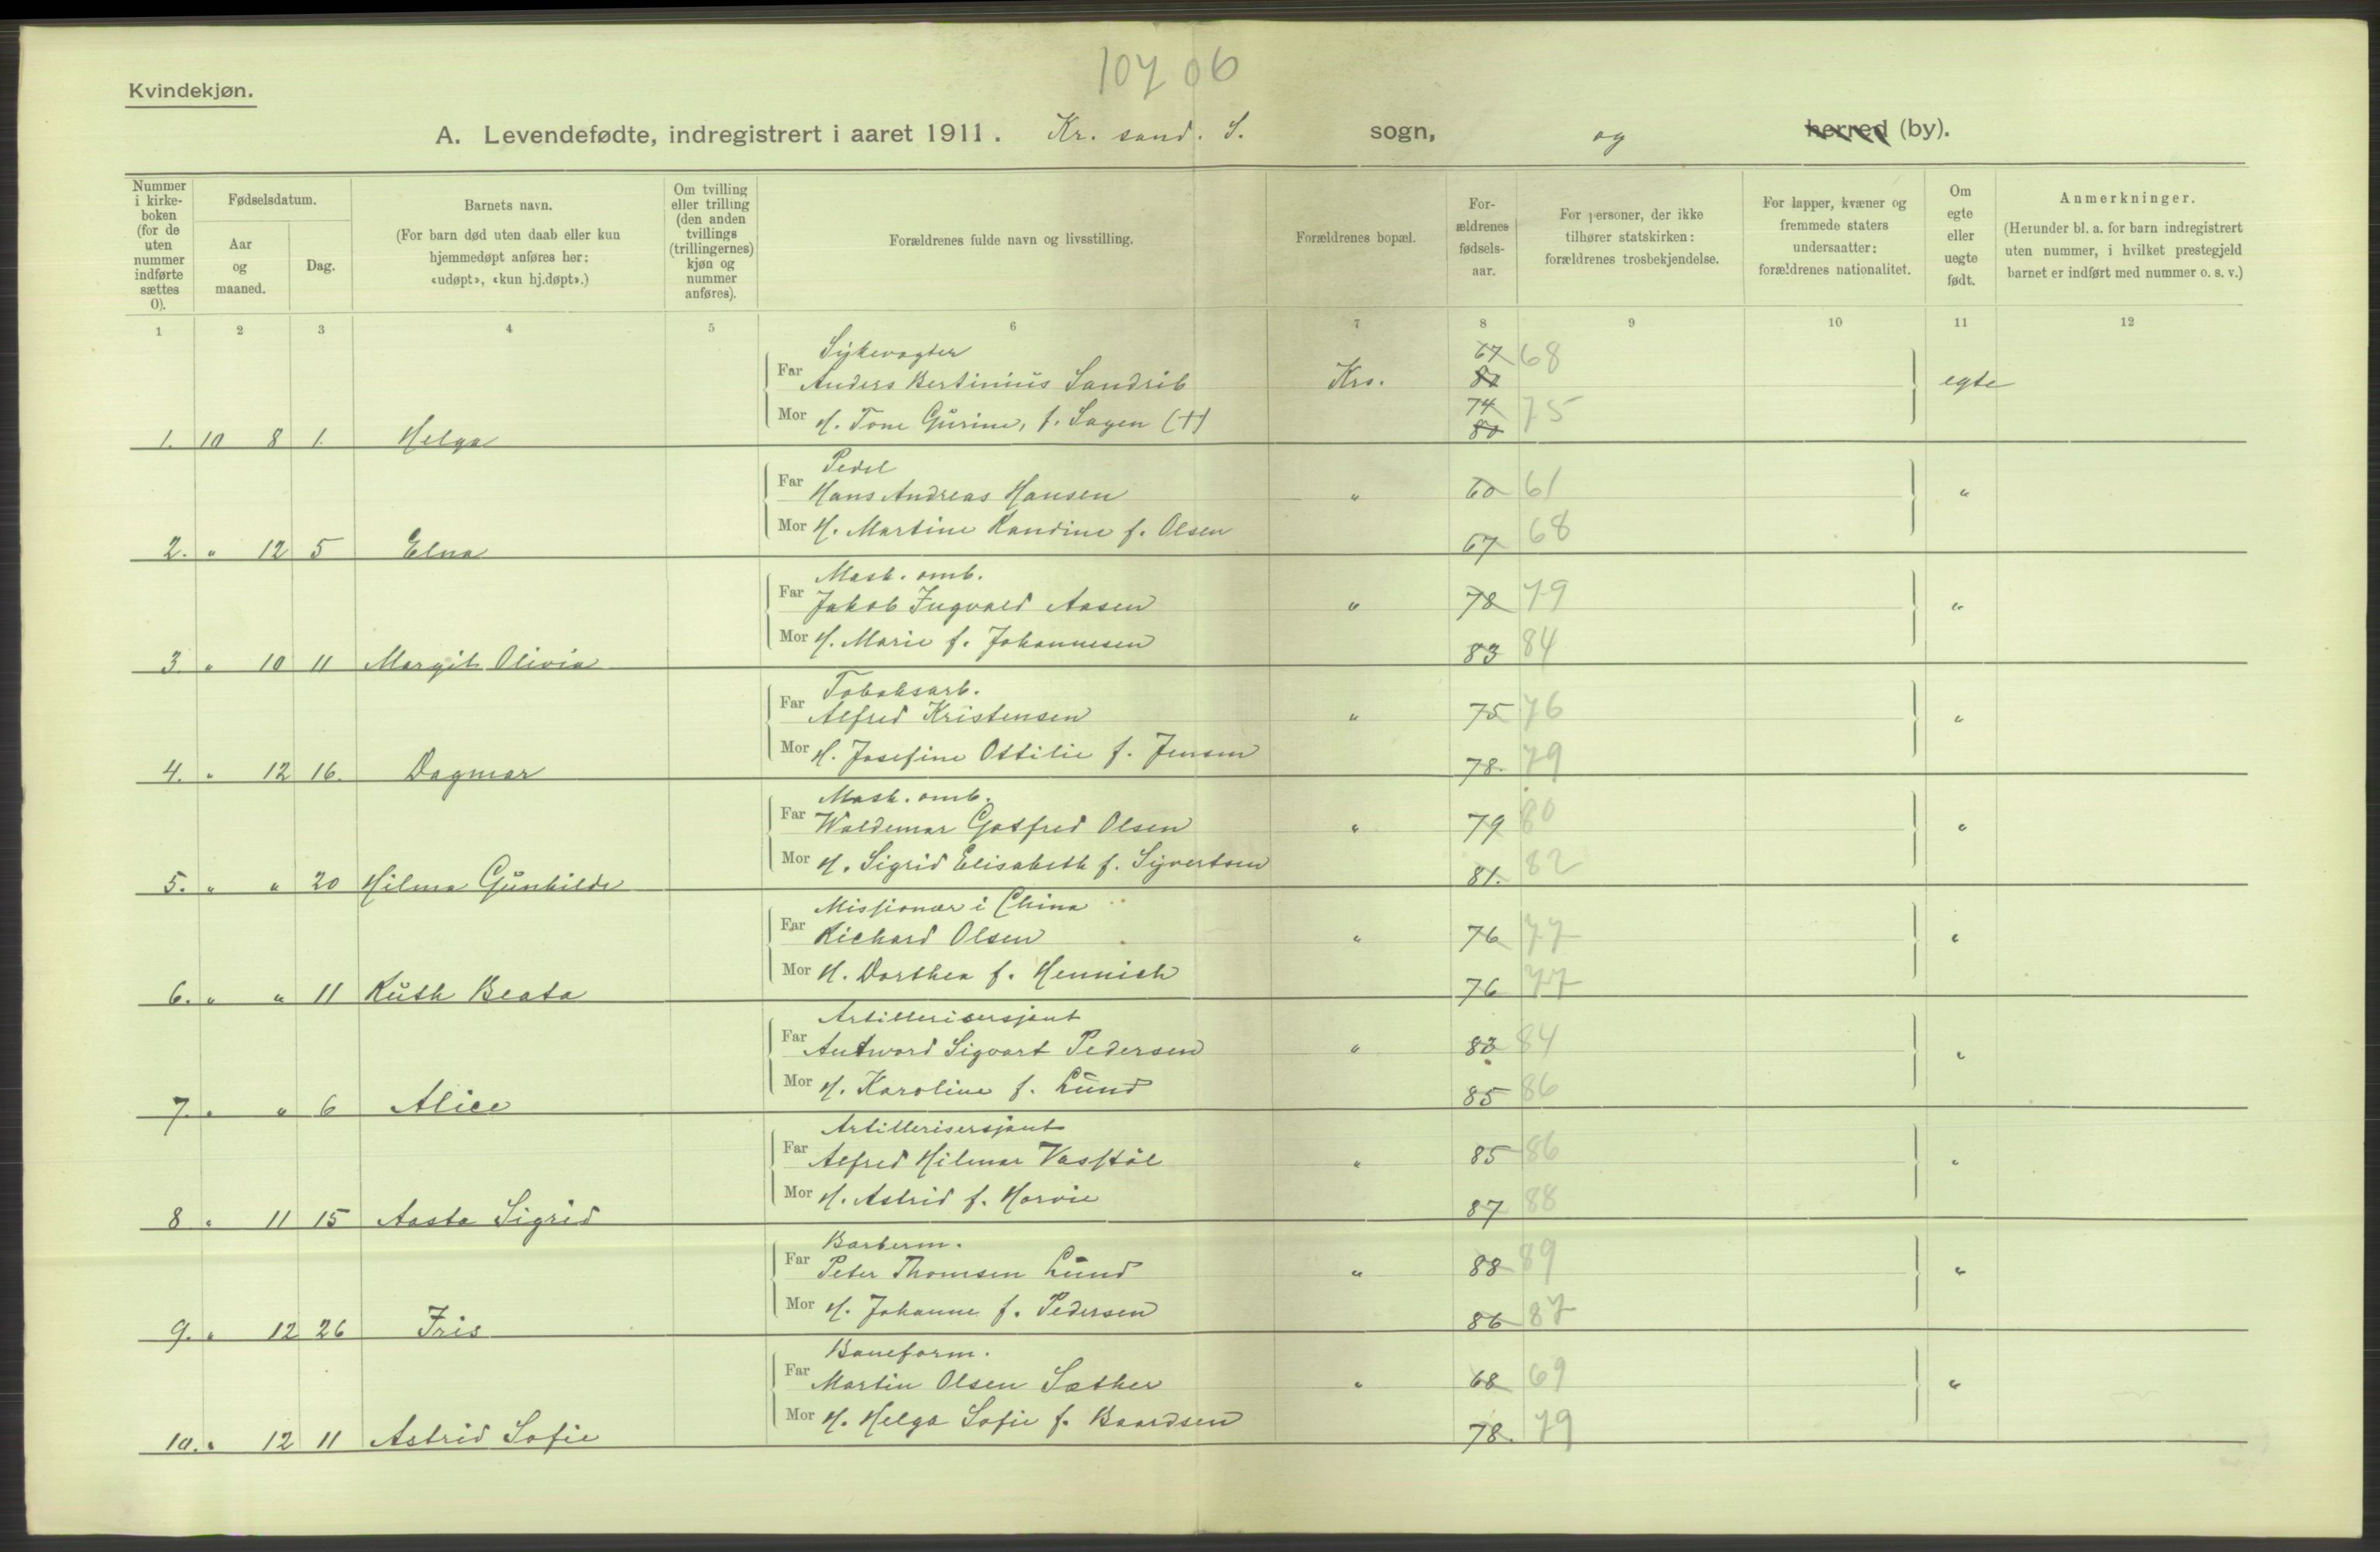 10706
Kvindekjøn.
A. Levendefødte, indregistrert i aaret 1911. Kr. sand. S. sogn, og herred (by).
Nummer i kirkeboken (for de uten nummer indførte sættes 0).
Fødselsdatum.
Aar og maaned.
Dag.
Barnets navn.
(For barn død uten daab eller kun hjemmedøpt anføres her: «udøpt», «kun hj.døpt».)
Om tvilling eller trilling (den anden tvillings (trillingernes) kjøn og nummer anføres).
Forældrenes fulde navn og livsstilling.
Forældrenes bopæl.
Forældrenes fødselsaar.
For personer, der ikke tilhører statskirken: forældrenes trosbekjendelse.
For lapper, kvæner og fremmede staters undersaatter: forældrenes nationalitet.
Om egte eller uegte født.
Anmerkninger.
(Herunder bl. a. for barn indregistrert uten nummer, i hvilket prestegjeld barnet er indført med nummer o. s. v.)
1 2 3 4 5 6 7 8 9 10 11 12
Sykevogter 67 68
Far Anders Bertinius Sandrib Krs. egte
Mor H. Tone Gurine, f. Sagen (†) 74 75
1. 10 8 1. Helga 80
Pedel
Far Hans Andreas Hansen " 60 61 "
Mor H. Martine Randine f. Olsen 68
2. " 12 5 Elna 67
Mask. omb.
Far Jakob Ingvald Aasen " 78 79 "
Mor H. Marie f. Johannesen
3. " 10 11 Margit Olivia 83 84
Tobaksarb.
Far Alfred Kristensen " 75 76 "
Mor H. Josefine Ottilie f. Jensen
4. " 12 16. Dagmar 78. 79
Mask. omb.
Far Waldemar Gotfred Olsen " 79 80 "
Mor H. Sigrid Elisabeth f. Syvertsen
5. " " 20 Hilma Gunhilde 81. 82
Missionær i China
Far Richard Olsen " 76 77 "
Mor H. Dorthea f. Hennich
6. " " 11 Ruth Beata 76 77
Artillerisersjant
Far Antword Sigvart Pedersen " 83 84 "
Mor H. Karoline f. Lund
7. " " 6 Alice 85 86
Artillerisersjant
Far Alfred Hilmar " 85 86 "
Mor H. Astrid f. Horvie
8 " 11 15 Aasta Sigrid 87 88
Barberm.
Far Peter Thomsen Lund " 88 89 "
Mor H. Johanne f. Pedersen
9. " 12 26 Iris 86 87
Baneform.
Far Martin Olsen Sæther " 68 69 "
Mor H. Helga Sofie f. Baardsen
10. " 12 11 Astrid Sofie 78. 79